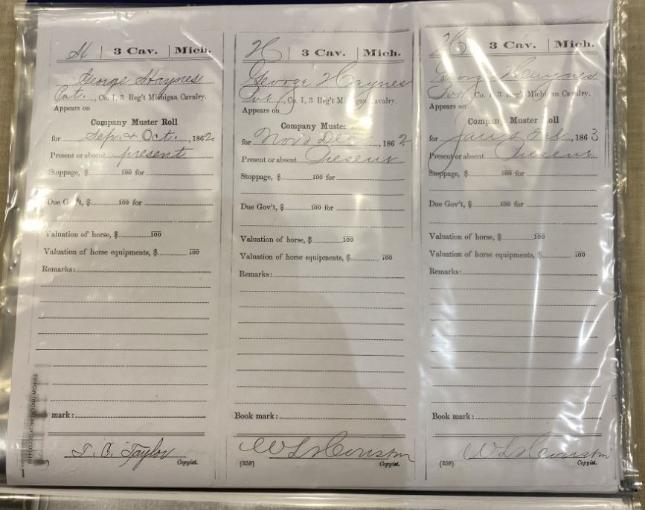 H | 3 Cav. | Mich.
George Haynes
Pvt., Co. I, 3 Reg't Michigan Cavalry.
Appears on
Company Muster Roll
for Sep. & Oct., 1862.
Present or absent present
Stoppage, $ 100 for
Due Gov't, $ 100 for
Valuation of horse, $ 100
Valuation of horse equipments, $ 100
Remarks:
mark:
T. B. Taylor
Copyist.
H | 3 Cav. | Mich.
George Haynes
Pvt, Co. I, 3 Reg't Michigan Cavalry.
Appears on
Company Muster
for Nov & Dec, 1862
Present or absent Present
Stoppage, $ 100 for
Due Gov't, $ 100 for
Valuation of horse, $ 100
Valuation of horse equipments, $ 100
Remarks:
Book mark:
(358) Copyist.
H | 3 Cav. | Mich.
George
Co. I, 3 Reg't Michigan Cavalry.
Appears on
Company Muster Roll
for Jan & Feb, 1863
Present or absent Present
Stoppage, $ 100 for
Due Gov't, $ 100 for
Valuation of horse, $ 100
Valuation of horse equipments, $ 100
Remarks:
Book mark:
(358) Copyist.